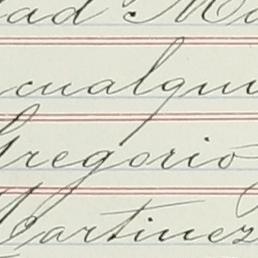 dad M
cualqui
Gregorio
Martinez